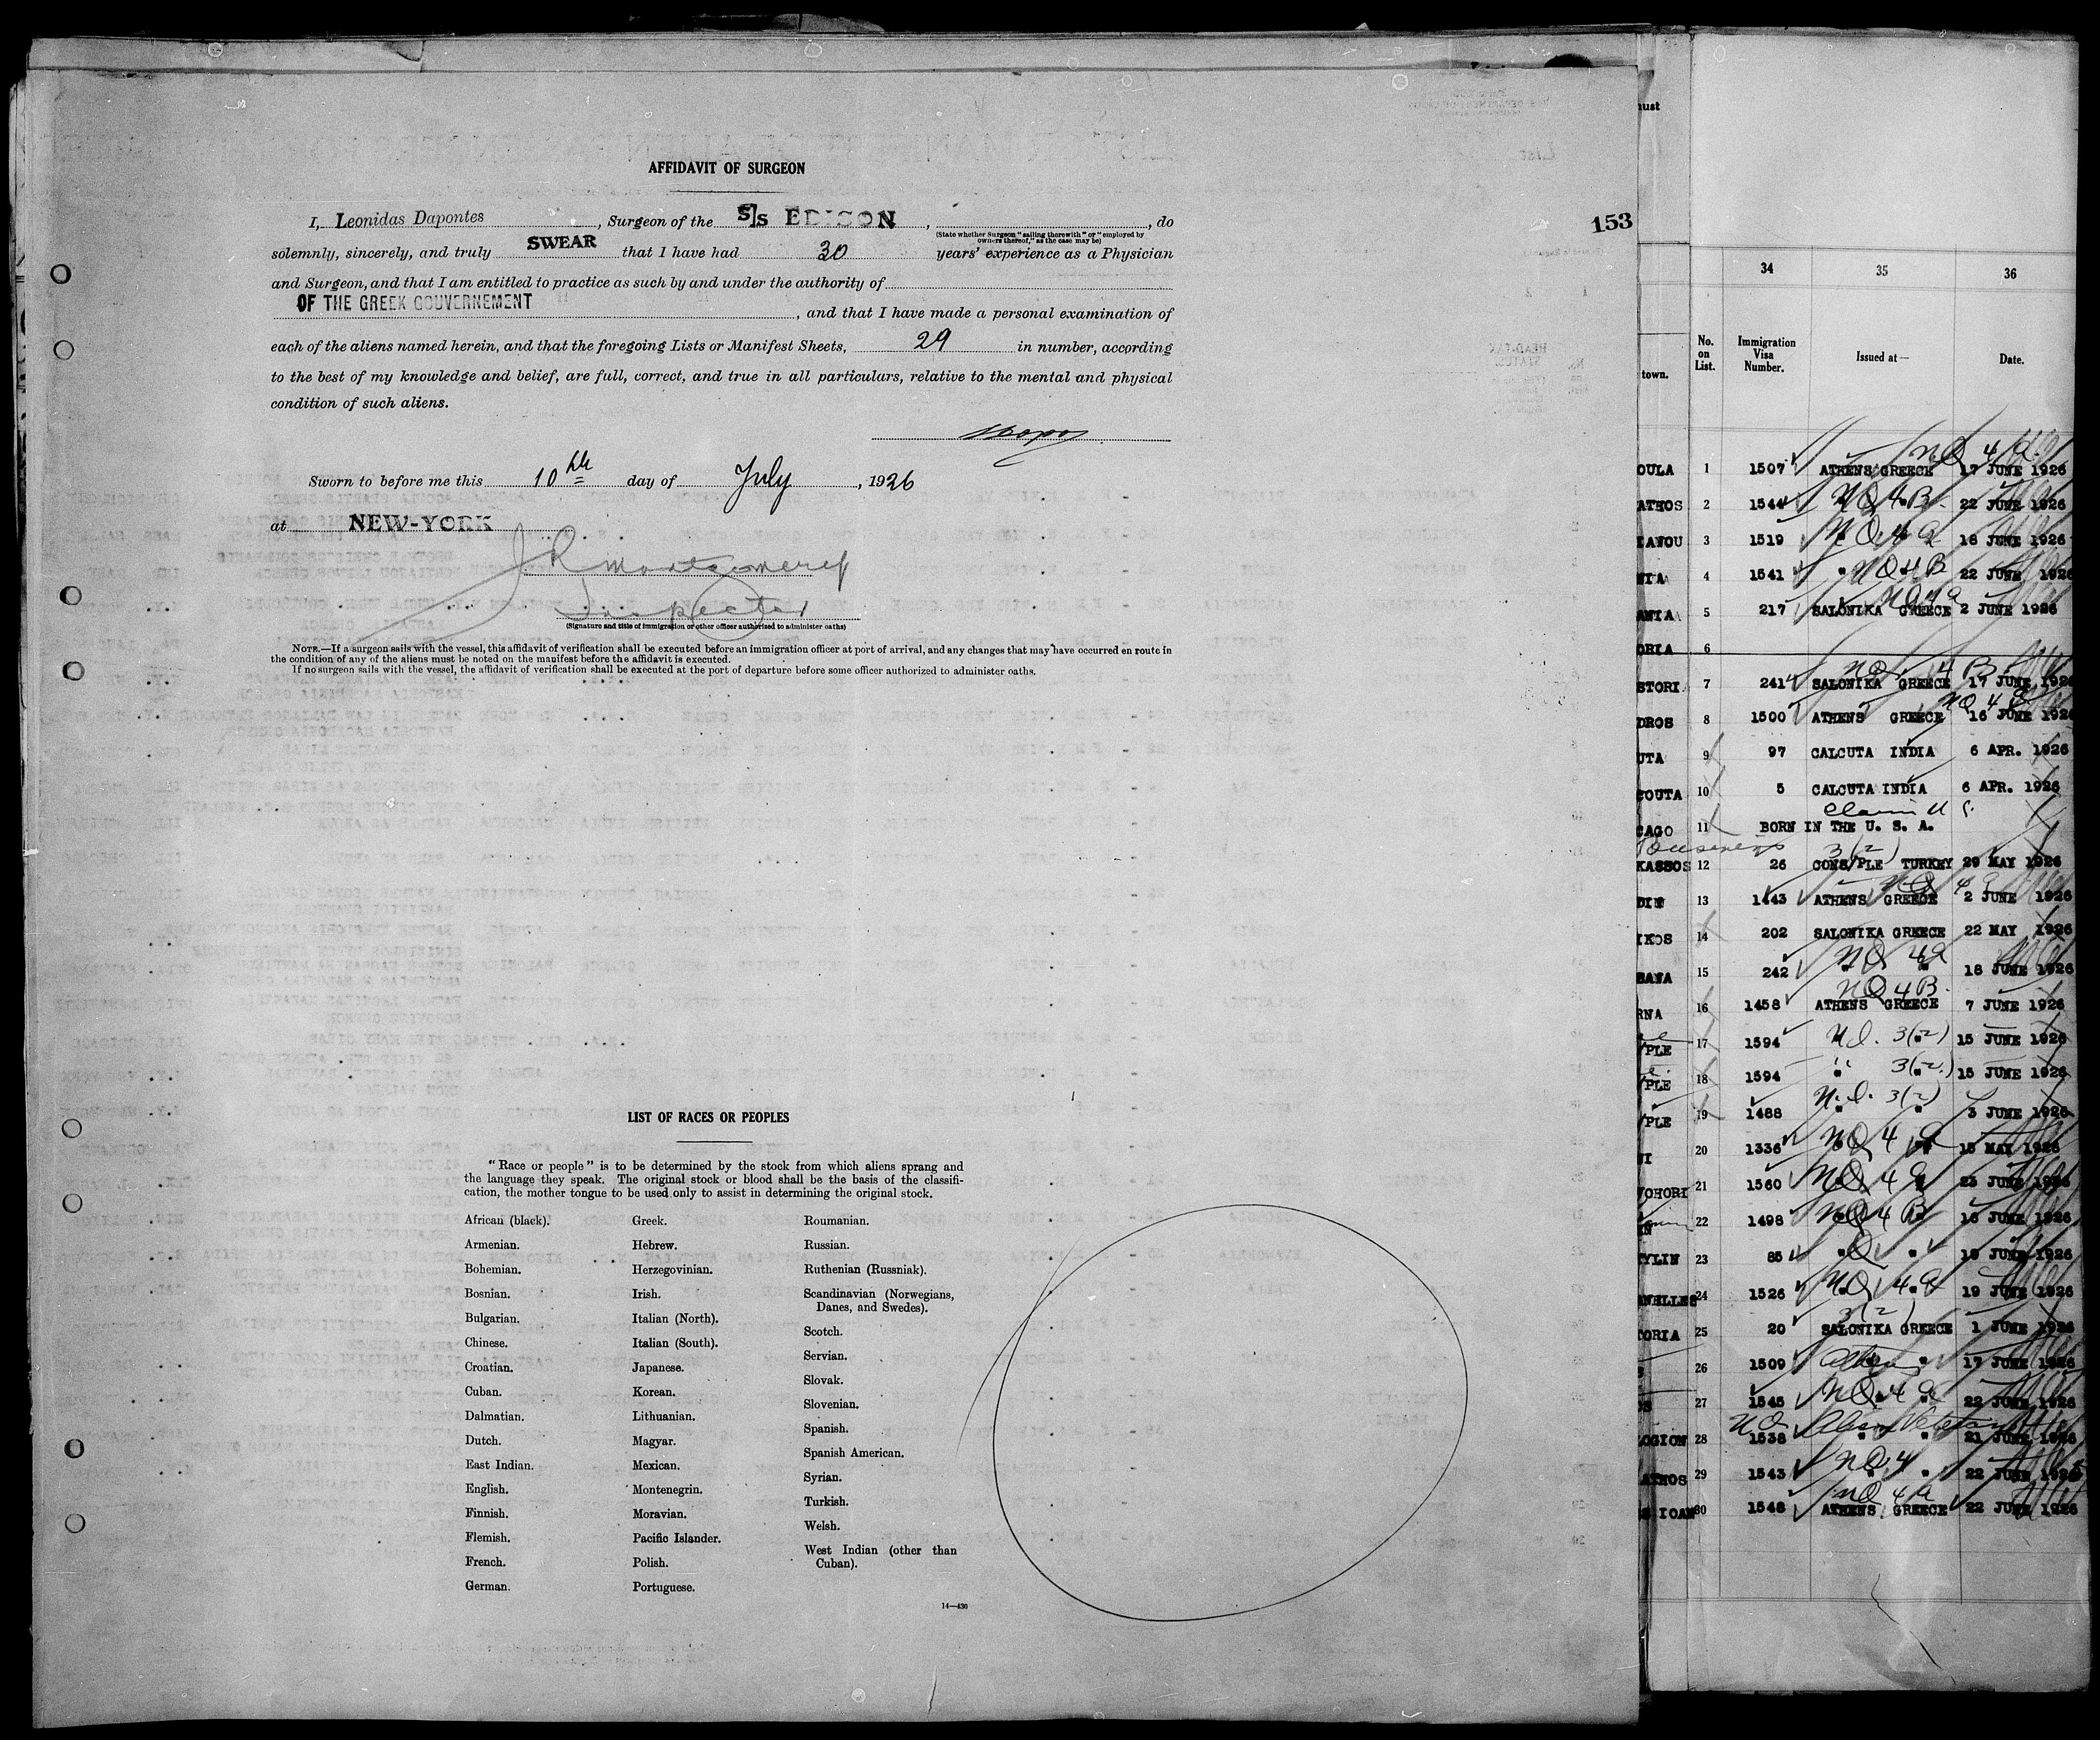 AFFIDAVIT OF SURGEON
I, Leonidas Dapontes, Surgeon of the S/S EDISON, , do
(State whether Surgeon "sailing therewith" or "employed by
owners thereof," as the case may be)
153
solemnly, sincerely, and truly SWEAR that I have had 30 years' experience as a Physician
and Surgeon, and that I am entitled to practice as such by and under the authority of
OF THE GREEK GOUVERNEMENT, and that I have made a personal examination of
each of the aliens named herein, and that the foregoing Lists or Manifest Sheets, 29 in number, according
to the best of my knowledge and belief, are full, correct, and true in all particulars, relative to the mental and physical
condition of such aliens.
Sworn to before me this 10th day of July, 1926
at NEW-YORK
J R Montgomery
Inspector
(Signature and title of immigration or other officer authorized to administer oaths)
NOTE.—If a surgeon sails with the vessel, this affidavit of verification shall be executed before an immigration officer at port of arrival, and any changes that may have occurred en route in
the condition of any of the aliens must be noted on the manifest before the affidavit is executed.
If no surgeon sails with the vessel, the affidavit of verification shall be executed at the port of departure before some officer authorized to administer oaths.
LIST OF RACES OR PEOPLES
"Race or people" is to be determined by the stock from which aliens sprang and
the language they speak. The original stock or blood shall be the basis of the classifi-
cation, the mother tongue to be used only to assist in determining the original stock.
African (black).
Armenian.
Bohemian.
Bosnian.
Bulgarian.
Chinese.
Croatian.
Cuban.
Dalmatian.
Dutch.
East Indian.
English.
Finnish.
Flemish.
French.
German.
Greek.
Hebrew.
Herzegovinian.
Irish.
Italian (North).
Italian (South).
Japanese.
Korean.
Lithuanian.
Magyar.
Mexican.
Montenegrin.
Moravian.
Pacific Islander.
Polish.
Portuguese.
Roumanian.
Russian.
Ruthenian (Russniak).
Scandinavian (Norwegians,
Danes, and Swedes).
Scotch.
Servian.
Slovak.
Slovenian.
Spanish.
Spanish American.
Syrian.
Turkish.
Welsh.
West Indian (other than
Cuban).
14—436
34 35 36
town. No. on List. Immigration Visa Number. Issued at— Date.
OULA 1 1507 ATHENS GREECE NQ 4 a. 17 JUNE 1926
ATHOS 2 1544 " NQ 4 B " 22 JUNE 1926
IANOU 3 1519 " NQ 4 a " 18 JUNE 1926
NIA 4 1541 " NQ 4 B 22 JUNE 1926
ANIA 5 217 SALONIKA GREECE NQ 4 a 2 JUNE 1926
ORIA 6
STORI 7 241 SALONIKA GREECE NQ 4 B 17 JUNE 1926
DROS 8 1500 ATHENS GREECE NQ 4 a 16 JUNE 1926
UTA 9 97 CALCUTA INDIA 6 APR. 1926
COUTA 10 5 CALCUTA INDIA 6 APR. 1926
Claim U S.
CAGO 11 BORN IN THE U. S. A.
KASSOS 12 26 CONS/PLE TURKEY 3(2) 29 MAY 1926
DIN 13 1443 ATHENS GREECE NQ 4 a 2 JUNE 1926
IKOS 14 202 SALONIKA GREECE 22 MAY 1926
BANA 15 242 " NQ 4a " 18 JUNE 1926
RNA 16 1458 ATHENS GREECE NQ 4 B. 7 JUNE 1926
/PLE 17 1594 " 3(2) " 15 JUNE 1926
/PLE 18 1594 " 3(2) " 15 JUNE 1926
/PLE 19 1488 " 3(2) " 3 JUNE 1926
NI 20 1336 " NQ 4 a " 15 MAY 1926
VOHORI 21 1560 " NQ 4 a " 23 JUNE 1926
N 22 1498 " NQ 4 B " 16 JUNE 1926
TYLIN 23 85 " Q " 19 JUNE 1926
ANELLES 24 1526 " NQ 4 a " 19 JUNE 1926
TORIA 25 20 SALONIKA GREECE 3(2) 1 JUNE 1926
S 26 1509 " " 17 JUNE 1926
OS 27 1545 " NQ 4 a " 22 JUNE 1926
NQ Alien Veteran
LOGION 28 1538 " " 21 JUNE 1926
ATHOS 29 1543 " NQ 4 " 22 JUNE 1926
IOAN 30 1548 ATHENS GREECE NQ 4 a 22 JUNE 1926